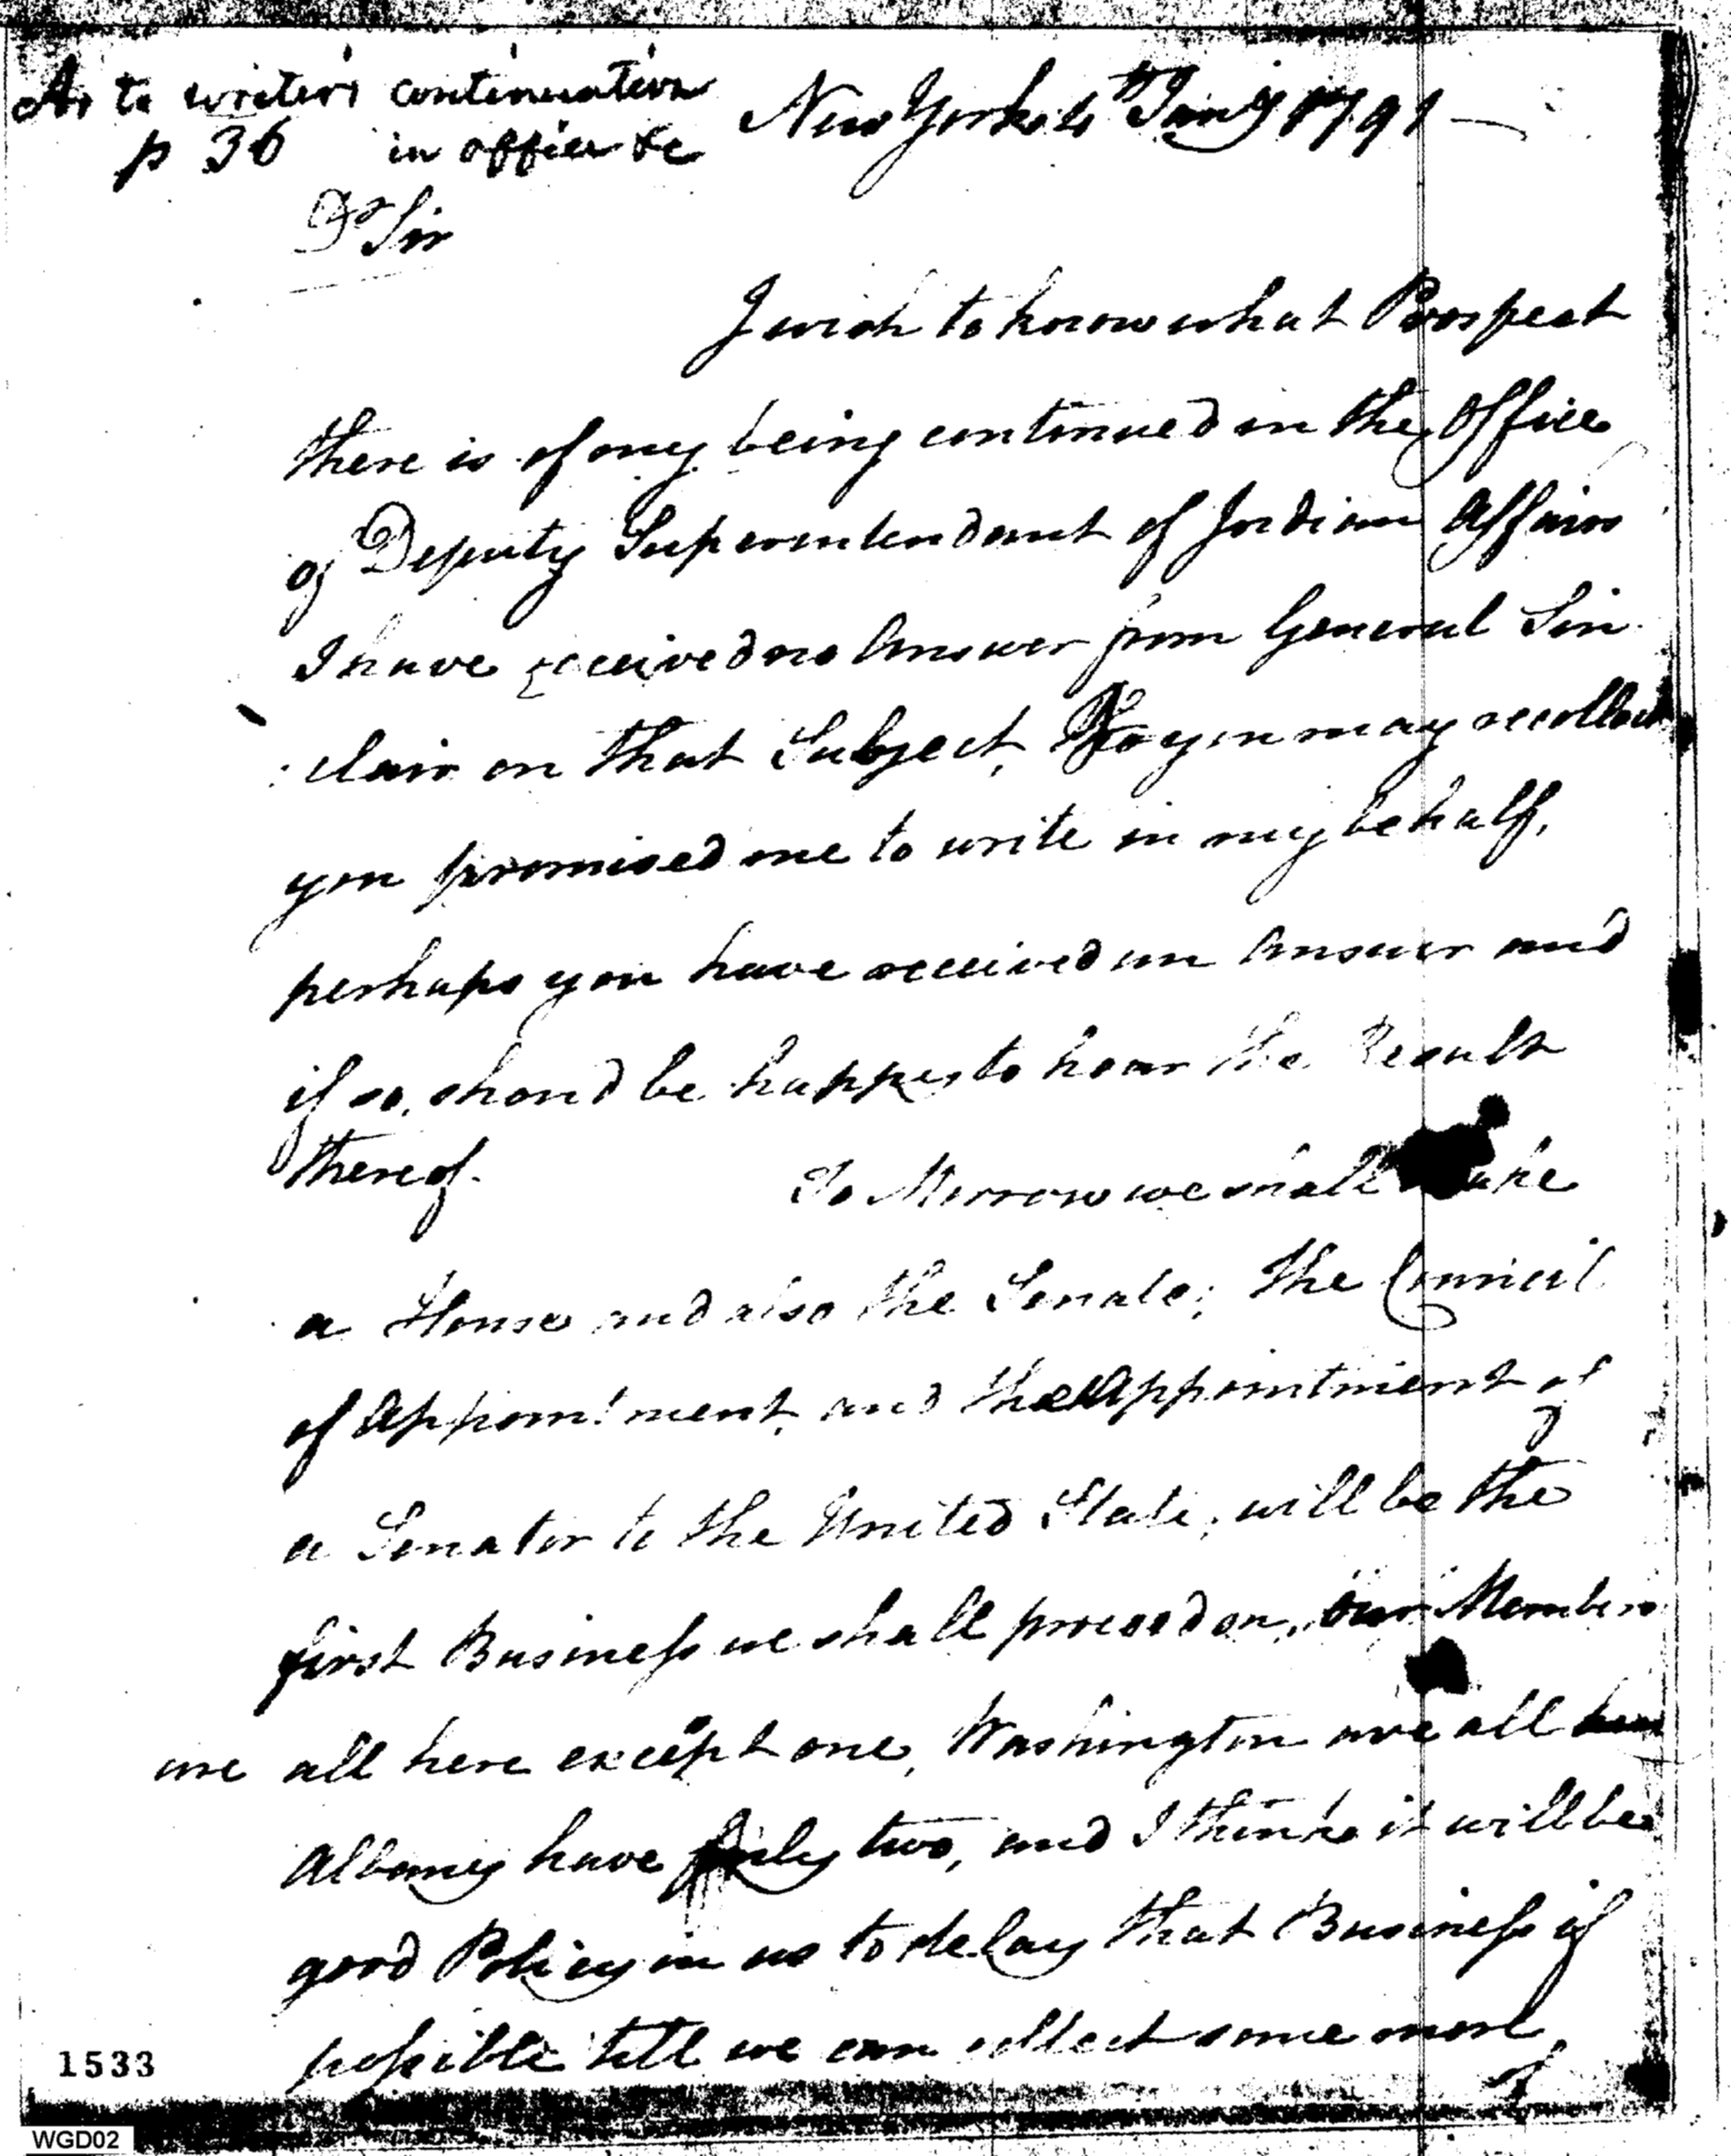 As to writer's continuation
p 36 in office &c
New York 4th Jany 1791
Dr Sir
I wish to know what Prospect
there is of my being continued in the Office
of Deputy Superintendant of Indian Affairs
I have received no Answer from General Sin
clair on that Subject, you may recollect
you promised me to write in my behalf,
perhaps you have received an Answer and
if so, shoud be happy to hear the Result
thereof.
To Morrow we shall make
a House and also the Senate; the Council
of Appointment, and the Appointment of
a Senator to the United State, will be the
first Business we shall proceed on, our Members
are all here except one, Washington are all here
Albany have only two, and I think it will be
good Policy in us to delay that Business if
possible till we can collect some more,
of
1533
WGD02